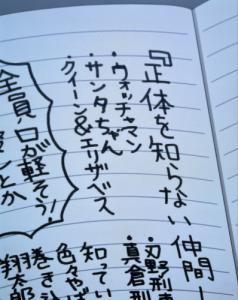 『正体を知らない仲間
・ウォッチャマン
・サンタちゃん
・クイーン&エリザベス
全員口が軽そう!
・刃野刑事
・真倉刑
知ってい
色々やば
巻き込
翔太郎